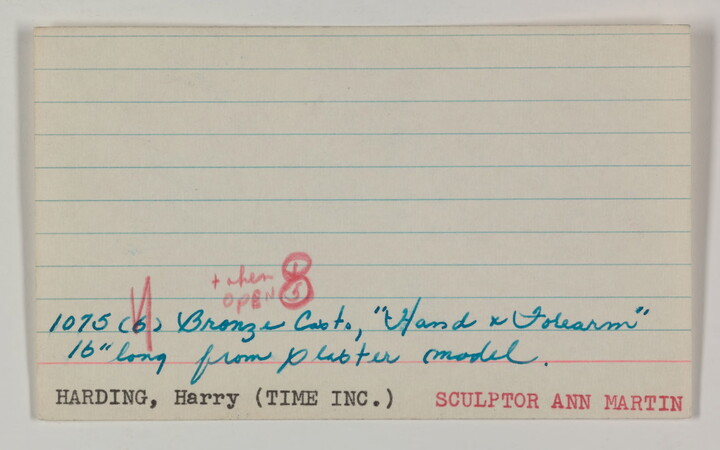 + when 1
OPEN 5
1075 (6) Bronze Casts, "Hand & Forearm"
16" long from plaster model.
HARDING, Harry (TIME INC.) SCULPTOR ANN MARTIN